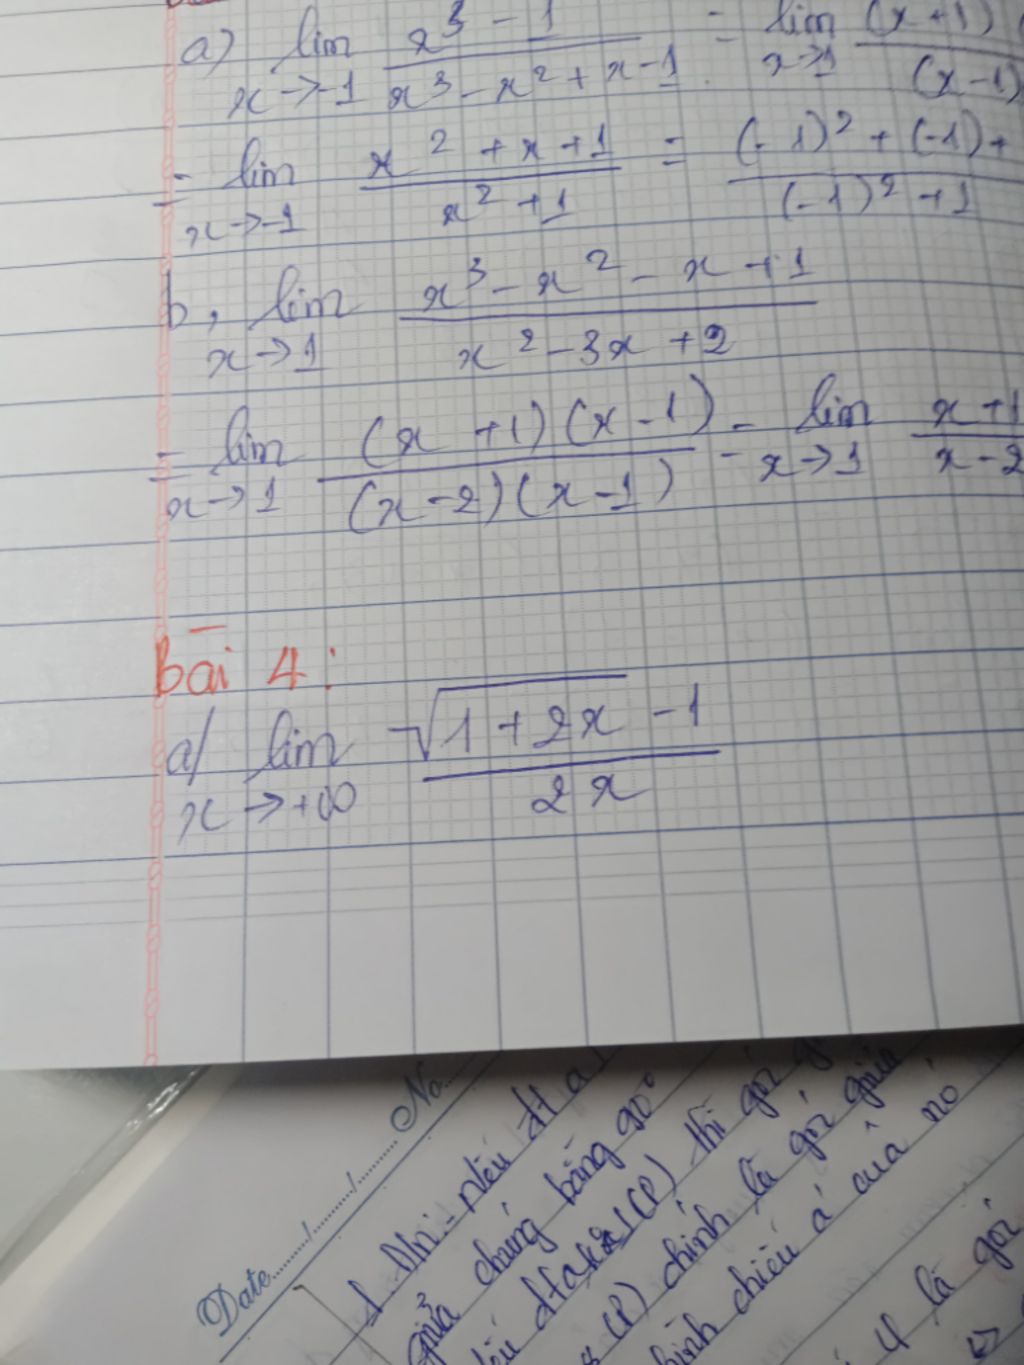 a) lim x→-1 (x³ - 1)/(x³ - x² + x - 1) = lim x→1 (x+1)(/(x-1)
= lim x→-1 (x² + x + 1)/(x² + 1) = ((-1)² + (-1) +)/((-1)² + 1)
b, lim x→1 (x³ - x² - x + 1)/(x² - 3x + 2)
= lim x→1 ((x + 1)(x - 1))/((x - 2)(x - 1)) = lim x→1 (x + 1)/(x - 2
bài 4:
a/ lim x→+∞ (√(1 + 2x) - 1)/(2x)
Date...../...../.....No.....
nếu đt a
giữa chúng bằng 90°
(P) thì góc
(P) chính là góc giữa
hình chiếu a' của nó
là góc